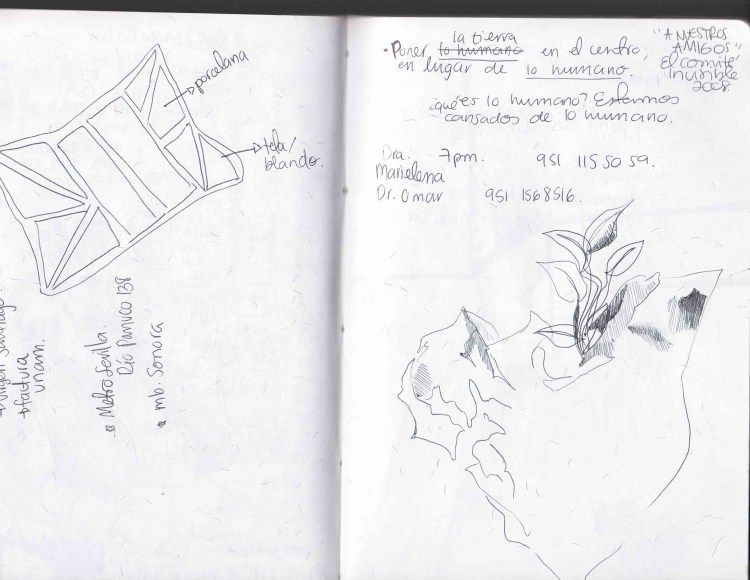 porcelana
tela/
blando.
factura
unam.
Metro Sevilla.
Río Panuco 138
mb. Sonora
la tierra
• Poner lo humano en el centro
en lugar de lo humano.
"A NUESTROS
AMIGOS"
El comité
invisible
2008.
¿qué es lo humano? Estamos
cansados de lo humano.
Dra. 7pm. 951 115 50 59.
Marielena
Dr. Omar 951 1568516.